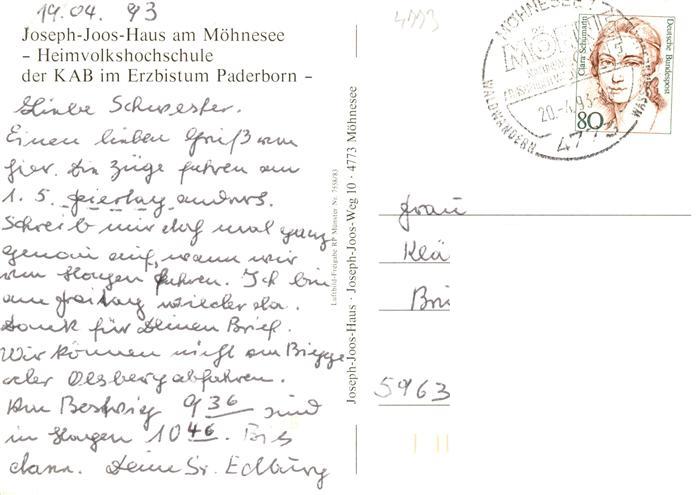 19.04.93
Joseph-Joos-Haus am Möhnesee
– Heimvolkshochschule
der KAB im Erzbistum Paderborn –
Liebe Schwester.
Einen lieben Gruß von
hier. Die Züge fahren am
1. 5. feiertag anders.
Schreib mir doch mal ganz
genau auf, wann wir
von Hagen fahren. Ich bin
am freitag wieder da.
Dank für Deinen Brief.
Wir können nicht am Bigge
oder Olsberg abfahren.
Am Bestwig 9 36 sind
in Hagen 10 46. Bis
dann. Deine Sr. Edburg
Luftbild-Freigabe RP Münster Nr. 7558/83
Joseph-Joos-Haus · Joseph-Joos-Weg 10 · 4773 Möhnesee
4773
MÖHNESEE 1
20.-4.93
WALDWANDERN
4773
Clara Schumann
Deutsche Bundespost
80
Frau
Klä
Bri
5963